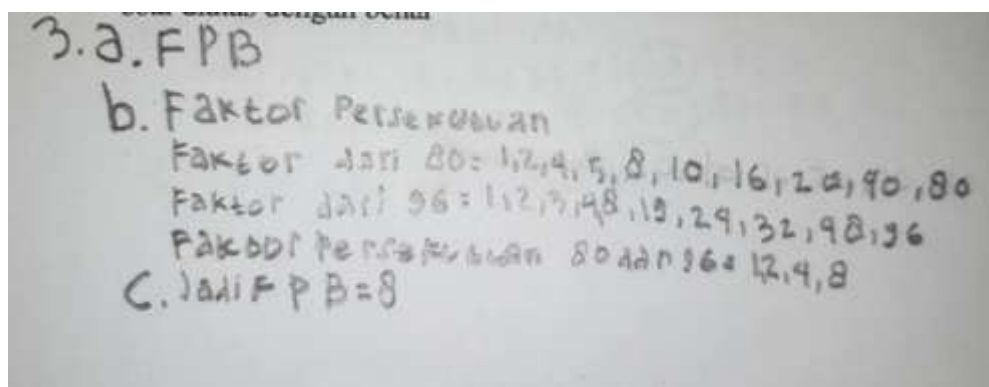 3. a. FPB
b. Faktor Persekutuan
Faktor dari 80 = 1,2,4,5,8,10,16,20,40,80
Faktor dari 96 = 1,2,3,4,8,12,24,32,48,96
Faktor Persekutuan 80 dan 96 = 1,2,4,8
C. Jadi FPB = 8